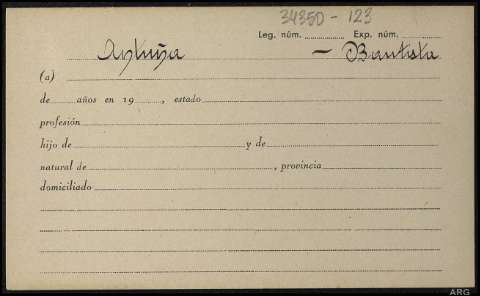 34350 - 123
Leg. núm. Exp. núm.
Antuña — Bautista
(a)
de años en 19 , estado
profesión
hijo de y de
natural de , provincia
domiciliado
ARG